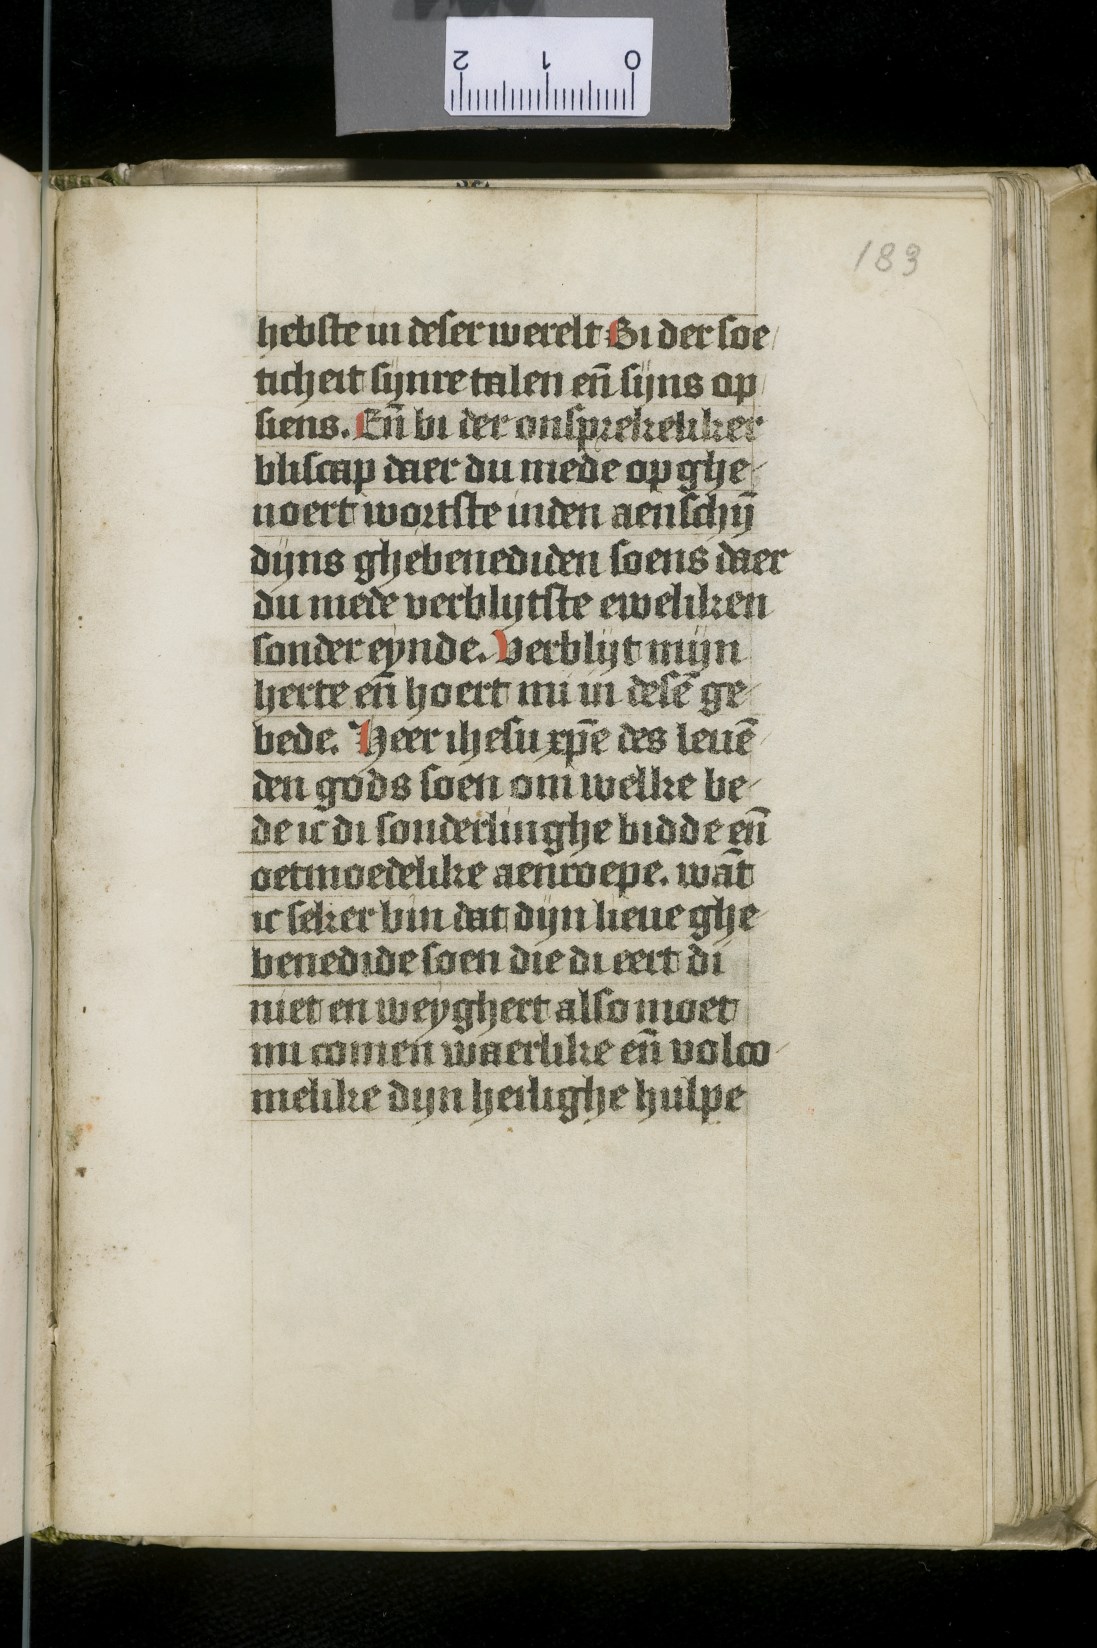 2 1 0
183
hebste in deser werelt Bi der soe
ticheit synre talen en̄ sijns op
siens. En̄ bi der onsprekeliker
bliscap daer du mede op ghe
uoert wortste inden aenschij̄
dijns ghebenediden soens daer
du mede verblijtste eweliken
sonder eynde. Verblijt mijn
herte en̄ hoert mi in desē ge
bede. Heer ihesu xp̄e des leuē
den gods soen om welke be
de ic di sonderlinghe bidde en̄
oetmoedelike aenroepe. wāt
ic seker bin dat dijn lieue ghe
benedide soen die di eert di
niet en weyghert also moet
mi comen waerlike en̄ volco
melike dijn heilighe hulpe